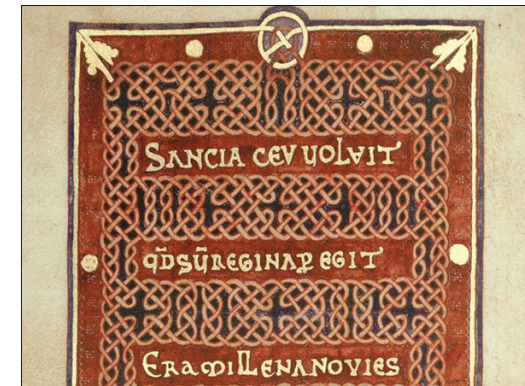 SANCIA CEV VOLVIT
qd̄ sūREGINAꝝ EGIT
ERA MILLENA NOVIES